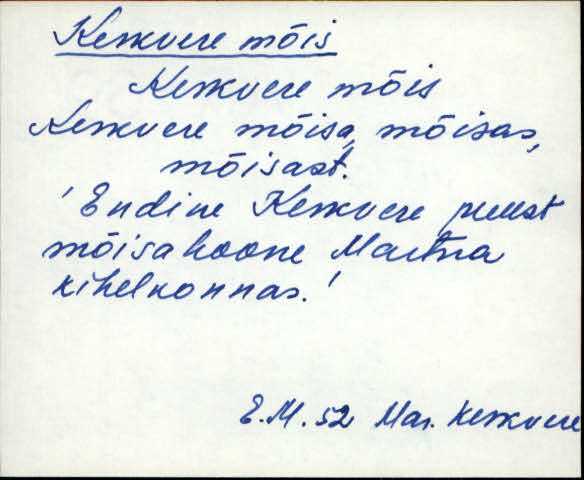 Keskvere mõis
Keskvere mõis
Keskvere mõisa, mõisas,
mõisast.
'Endine Keskvere puust
mõisahoone Martna
kihelkonnas.'
E.M. 52 Mar. Keskvere